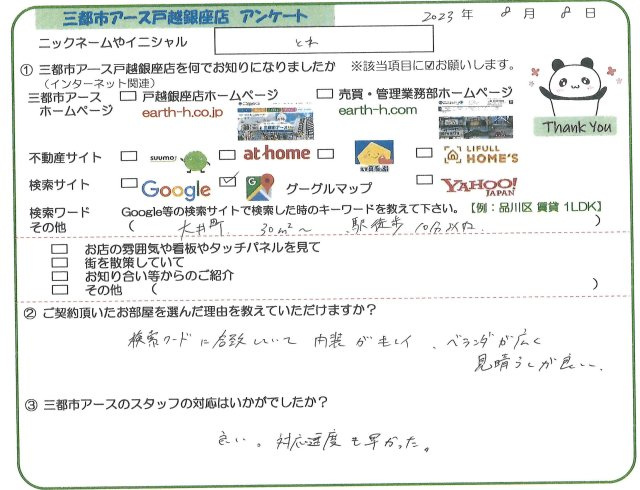 三都市アース戸越銀座店 アンケート
2023 年 8 月 8 日
ニックネームやイニシャル
とれ
① 三都市アース戸越銀座店を何でお知りになりましたか ※該当項目に☑お願いします。
(インターネット関連)
三都市アース ホームページ
□ 戸越銀座店ホームページ □ 売買・管理業務部ホームページ
earth-h.co.jp earth-h.com
Thank You
不動産サイト □ SUUMO □ at home □ □ LIFULL HOME'S
検索サイト □ Google ☑ グーグルマップ □ YAHOO! JAPAN
検索ワード Google等の検索サイトで検索した時のキーワードを教えて下さい。【例：品川区 賃貸 1LDK】
その他 ( 大井町 30m²〜 駅徒歩 10分以内 )
□ お店の雰囲気や看板やタッチパネルを見て
□ 街を散策していて
□ お知り合い等からのご紹介
□ その他 ( )
② ご契約頂いたお部屋を選んだ理由を教えていただけますか？
検索ワードに合致していて 内装がキレイ、ベランダが広く
見晴らしが良い、
③ 三都市アースのスタッフの対応はいかがでしたか？
良い。対応速度も早かった。